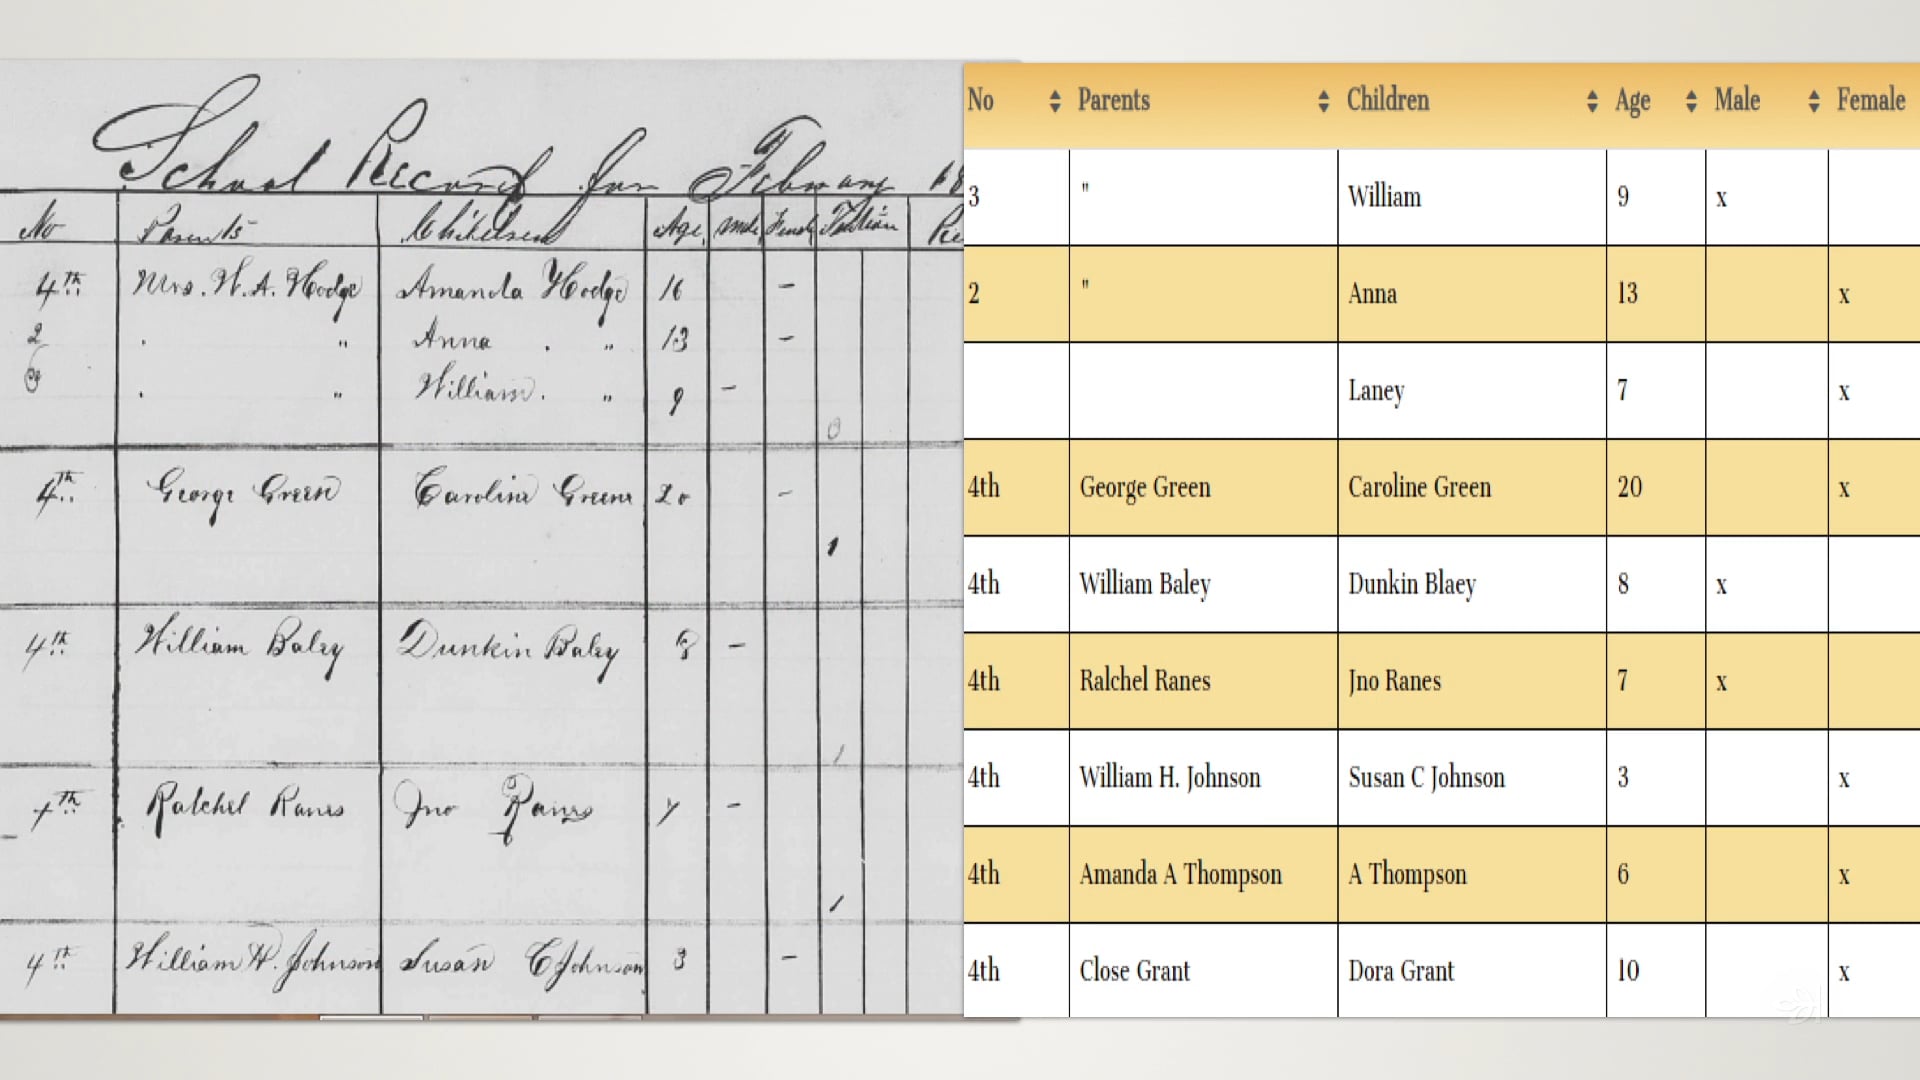 School Record for Februarry 18
No Parents Children Age Male Female Tuition
4th Mrs. W. A. Hodge Amanda Hodge 16 –
2 . " Anna . " 13 –
3 . " William . " 9 –
0
4th George Green Caroline Greene 20 –
1
4th William Baley Dunkin Baley 8 –
1
4th Ralchel Ranes Jno Ranes 7 –
1
4th William H. Johnson Susan C Johnson 3 –
No Parents Children Age Male Female
3 " William 9 x
2 " Anna 13 x
Laney 7 x
4th George Green Caroline Green 20 x
4th William Baley Dunkin Blaey 8 x
4th Ralchel Ranes Jno Ranes 7 x
4th William H. Johnson Susan C Johnson 3 x
4th Amanda A Thompson A Thompson 6 x
4th Close Grant Dora Grant 10 x